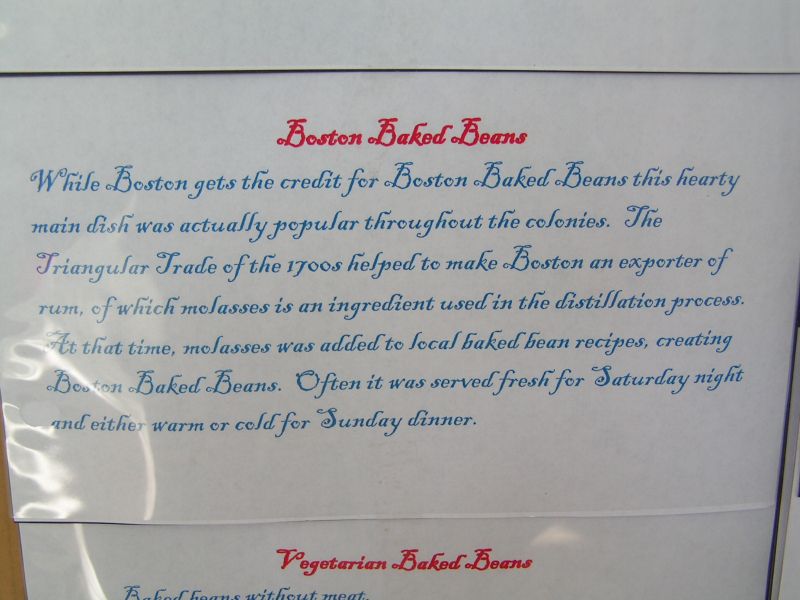 Boston Baked Beans
While Boston gets the credit for Boston Baked Beans this hearty
main dish was actually popular throughout the colonies. The
Triangular Trade of the 1700s helped to make Boston an exporter of
rum, of which molasses is an ingredient used in the distillation process.
At that time, molasses was added to local baked bean recipes, creating
Boston Baked Beans. Often it was served fresh for Saturday night
and either warm or cold for Sunday dinner.
Vegetarian Baked Beans
Baked beans without meat.